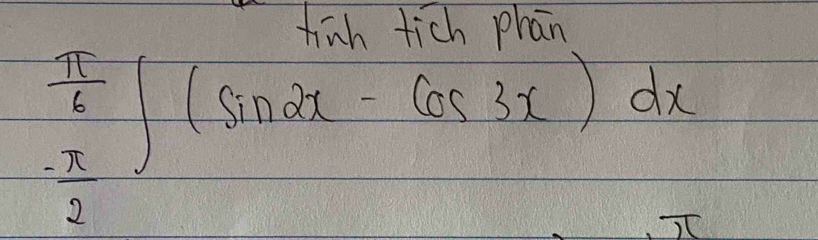 tính tích phân
π/6 ∫ -π/2 (sin2x - Cos 3x) dx
π